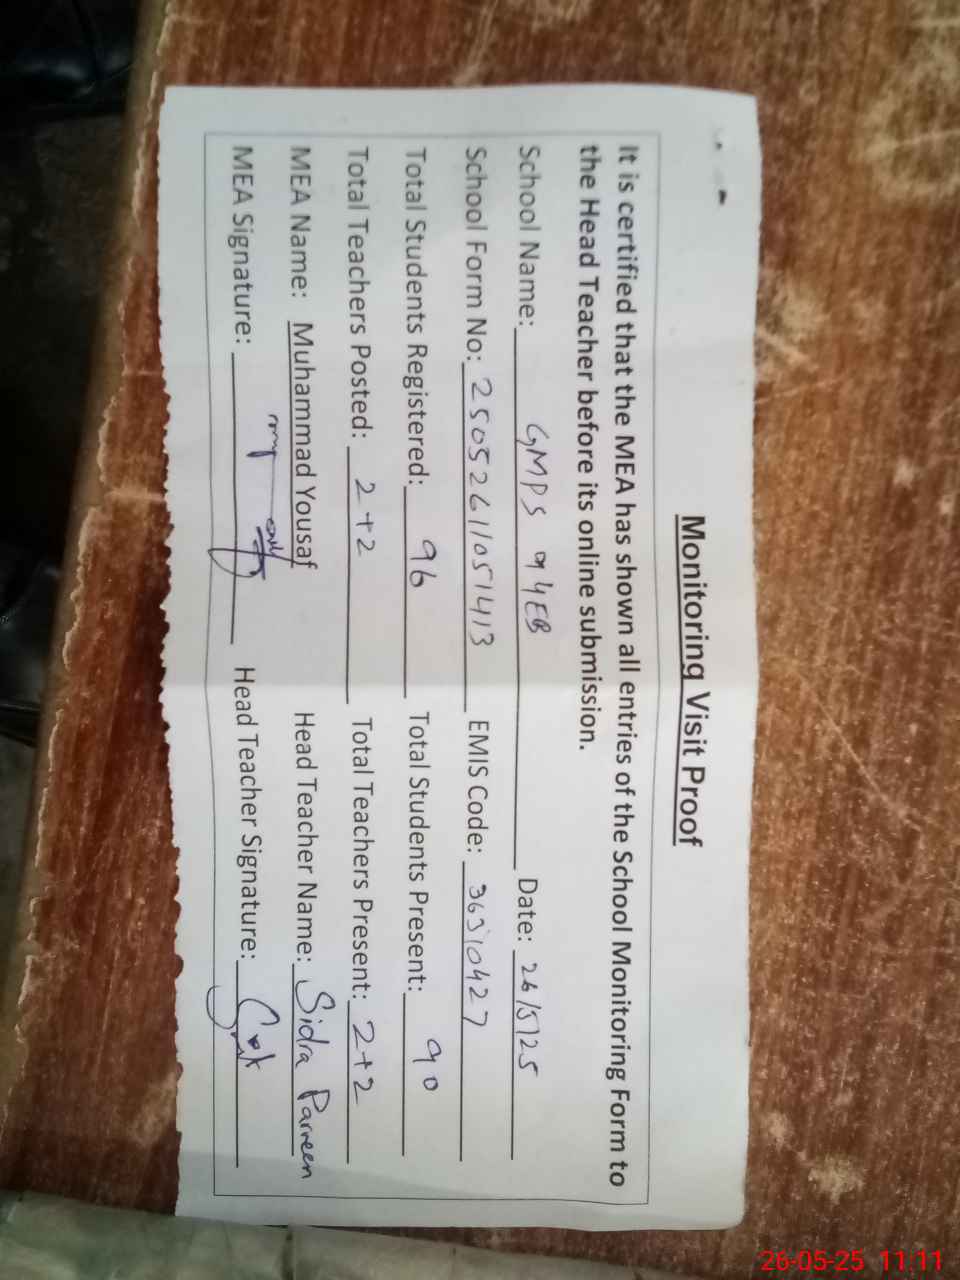 Monitoring Visit Proof
It is certified that the MEA has shown all entries of the School Monitoring Form to
the Head Teacher before its online submission.
School Name: GMPS 94EB Date: 26/5/25
School Form No: 2505261051413 EMIS Code: 36310427
Total Students Registered: 96 Total Students Present: 90
Total Teachers Posted: 2+2 Total Teachers Present: 2+2
MEA Name: Muhammad Yousaf Head Teacher Name: Sidra Parveen
MEA Signature: Head Teacher Signature:
26-05-25 11:11